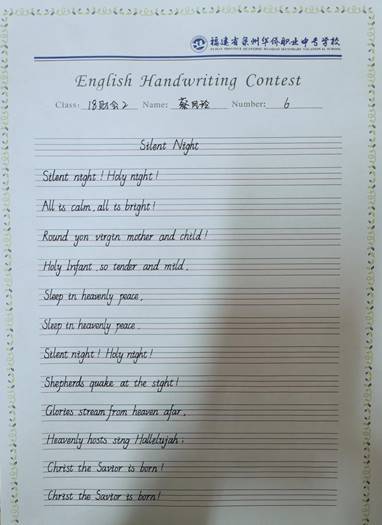 福建省泉州华侨职业中专学校
English Handwriting Contest
Class: 18财会2 Name: Number: 6
Silent Night
Silent night! Holy night!
All is calm, all is bright!
Round yon virgin mother and child!
Holy Infant, so tender and mild,
Sleep in heavenly peace,
Sleep in heavenly peace.
Silent night! Holy night!
Shepherds quake at the sight!
Glories stream from heaven afar,
Heavenly hosts sing Hallelujah;
Christ the Savior is born!
Christ the Savior is born!